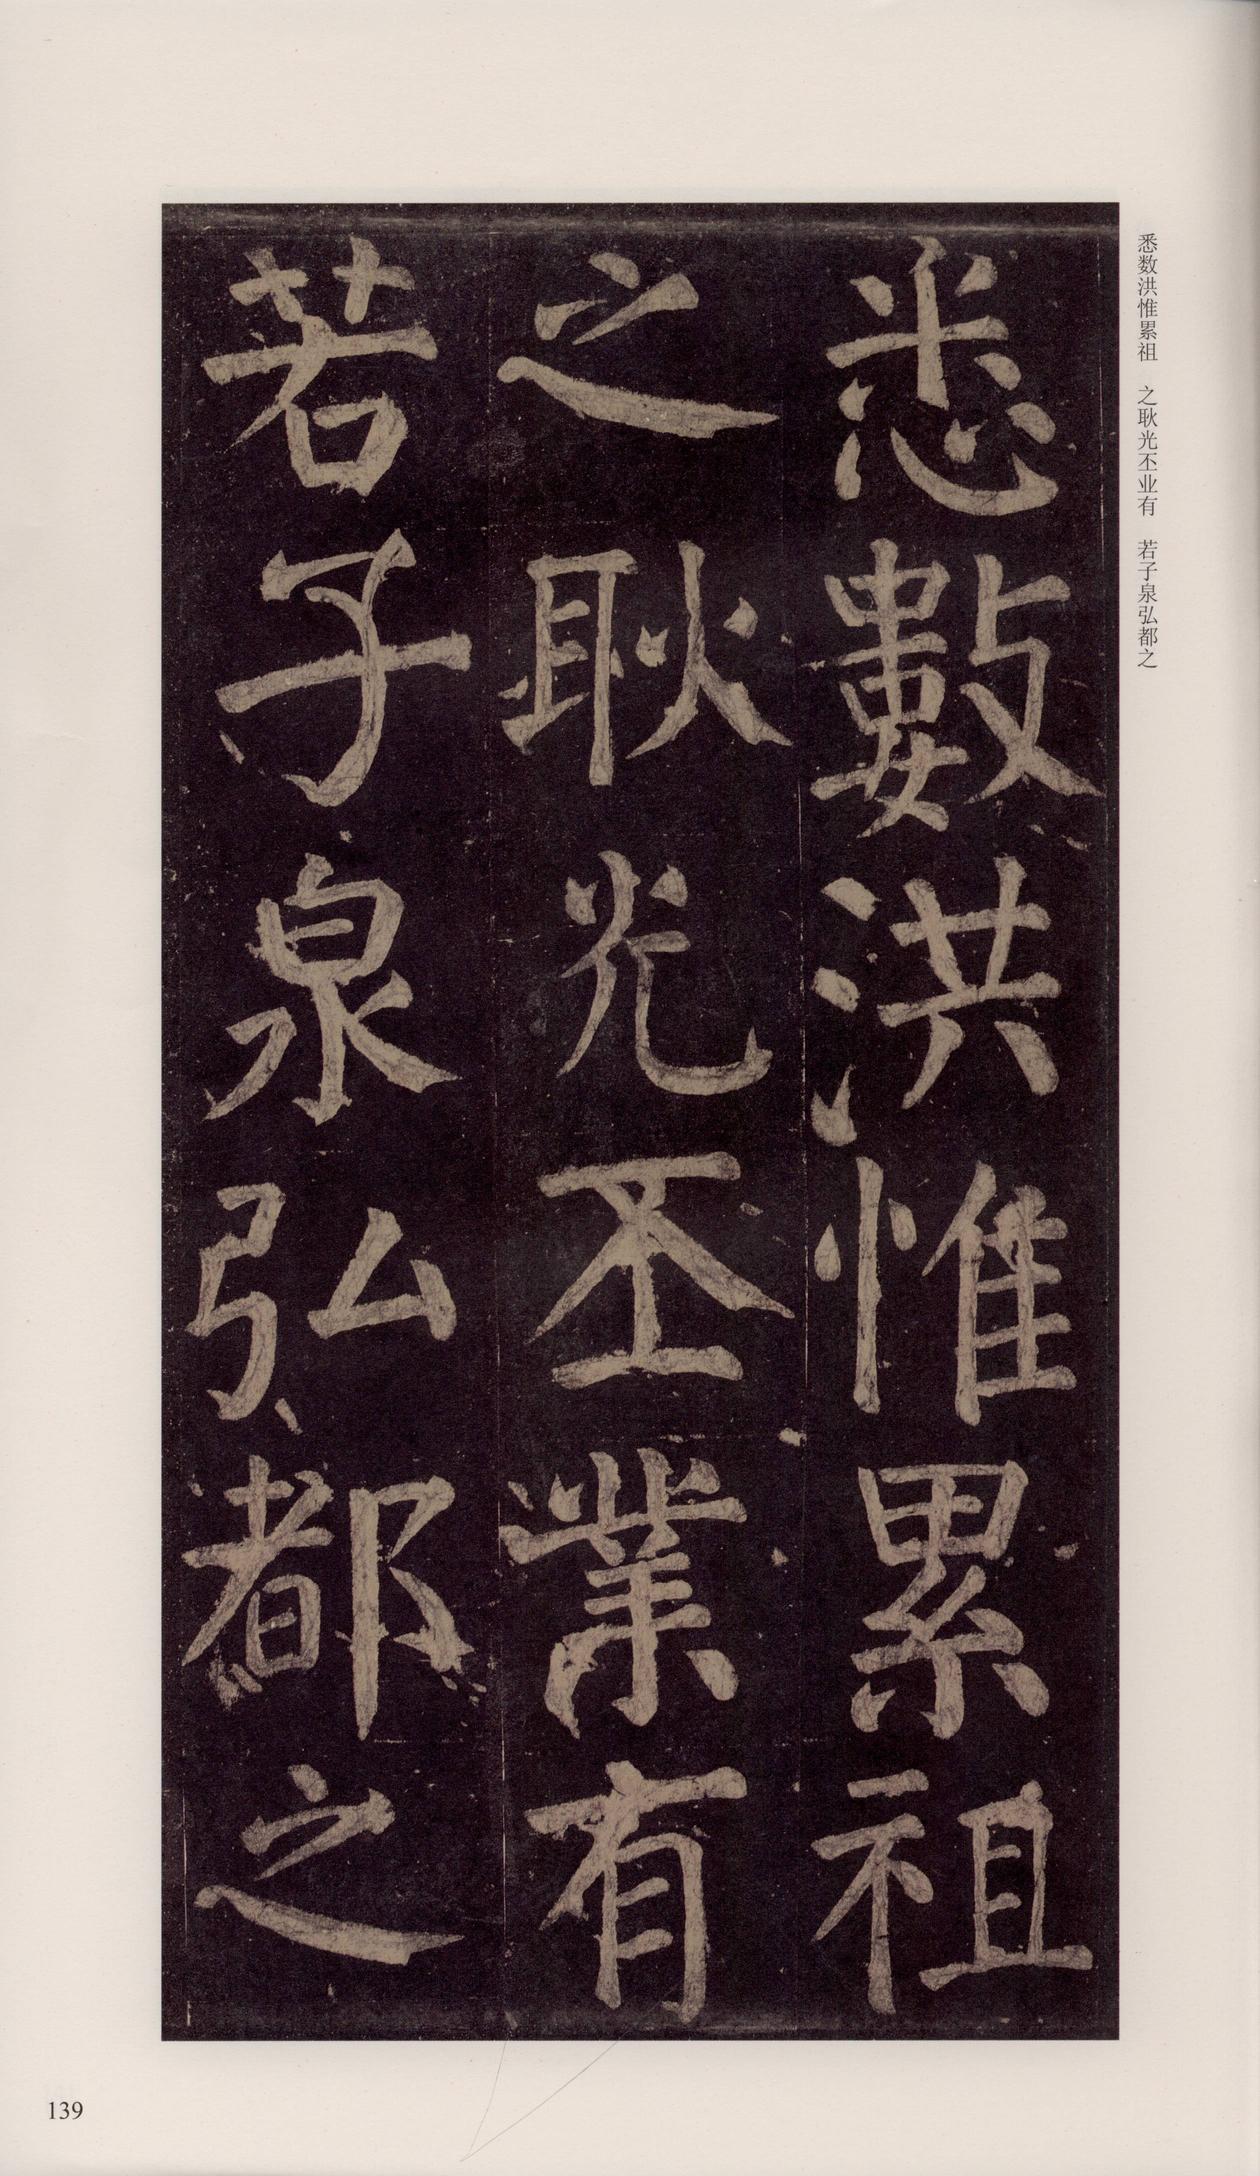 悉数洪惟累祖　之耿光丕业有　若子泉弘都之
悉數洪惟累祖
之耿光丕業有
若子泉弘都之
139